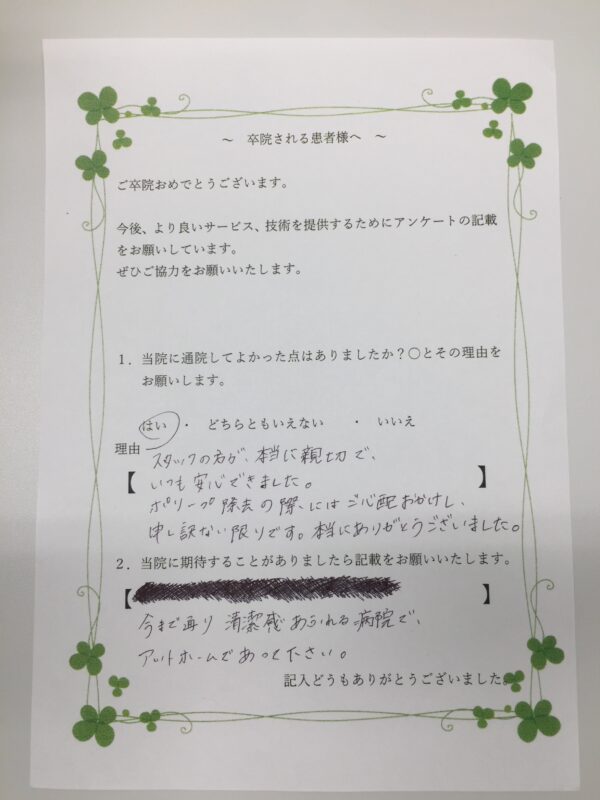 ～ 卒院される患者様へ ～
ご卒院おめでとうございます。
今後、より良いサービス、技術を提供するためにアンケートの記載
をお願いしています。
ぜひご協力をお願いいたします。
1．当院に通院してよかった点はありましたか？○とその理由を
お願いします。
はい ・ どちらともいえない ・ いいえ
理由
スタッフの方が、本当に親切で、
【 いつも安心できました。 】
ポリープ除去の際にはご心配おかけし、
申し訳ない限りです。本当にありがとうございました。
2．当院に期待することがありましたら記載をお願いいたします。
【 】
今まで通り 清潔感あふれる病院で、
アットホームであって下さい。
記入どうもありがとうございました。